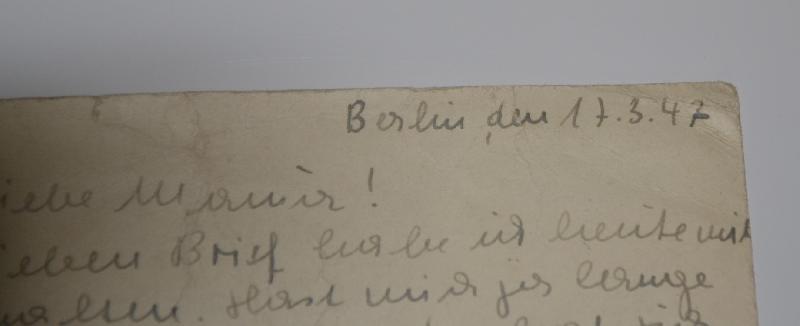 Berlin, den 17.3.47
iebe Maria!
ieben Brief habe ich heute mit
alten. Hast mich ja lange